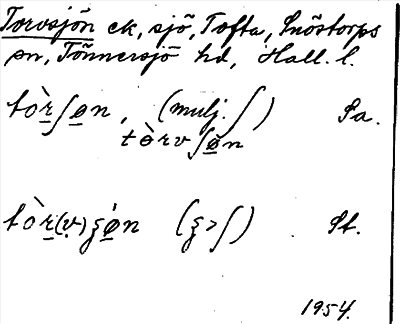 Torvsjön ek, sjö, Tofta, Snöstorps
sn, Tönnersjö hd, Hall. l.
tòr̲ʃø̲n, (mulj. ʃ) Sa.
tòrvʃø̲n
tòr̲(v)ʂǿ̲n (ʂ>ʃ) St.
1954.